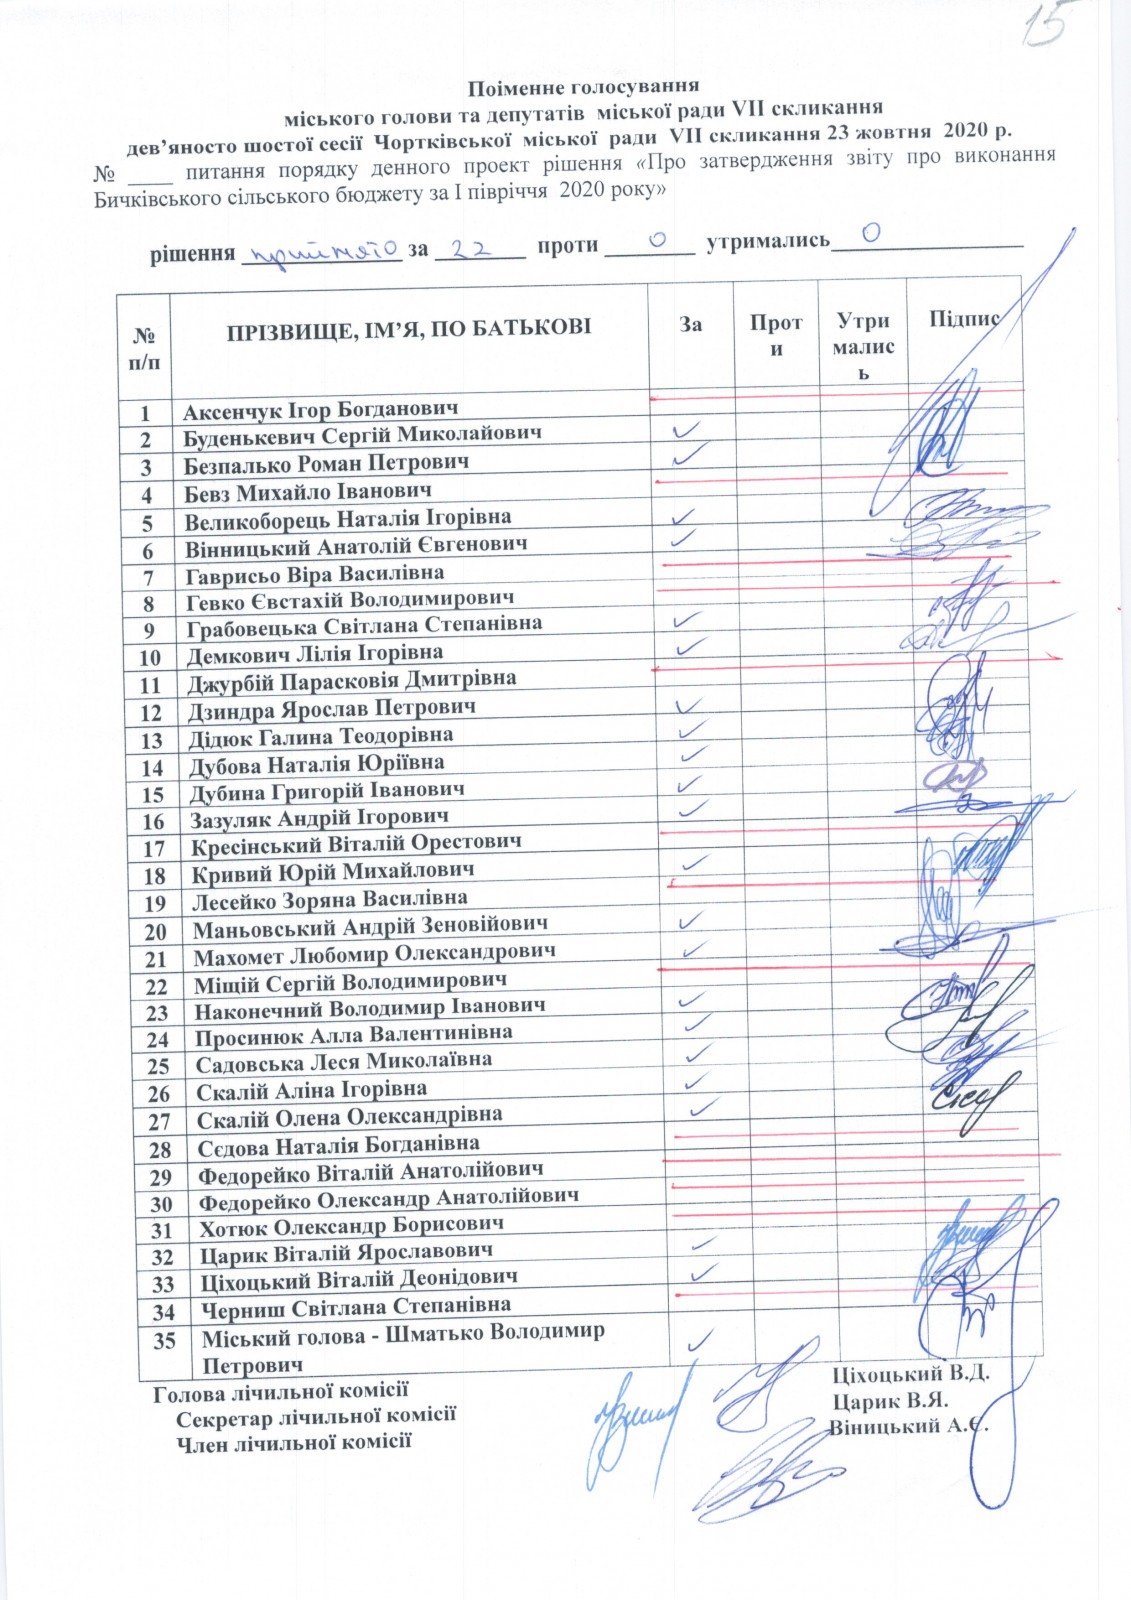 15
Поіменне голосування
міського голови та депутатів міської ради VII скликання
дев’яносто шостої сесії Чортківської міської ради VII скликання 23 жовтня 2020 р.
№ ____ питання порядку денного проект рішення «Про затвердження звіту про виконання
Бичківського сільського бюджету за І півріччя 2020 року»
рішення прийнято за 22 проти 0 утримались 0
№ п/п ПРІЗВИЩЕ, ІМ’Я, ПО БАТЬКОВІ За Проти Утрималис ь Підпис
1 Аксенчук Ігор Богданович
2 Буденькевич Сергій Миколайович ✓
3 Безпалько Роман Петрович ✓
4 Бевз Михайло Іванович
5 Великоборець Наталія Ігорівна ✓
6 Вінницький Анатолій Євгенович ✓
7 Гаврисьо Віра Василівна
8 Гевко Євстахій Володимирович
9 Грабовецька Світлана Степанівна ✓
10 Демкович Лілія Ігорівна ✓
11 Джурбій Парасковія Дмитрівна
12 Дзиндра Ярослав Петрович ✓
13 Дідюк Галина Теодорівна ✓
14 Дубова Наталія Юріївна ✓
15 Дубина Григорій Іванович ✓
16 Зазуляк Андрій Ігорович ✓
17 Кресінський Віталій Орестович
18 Кривий Юрій Михайлович ✓
19 Лесейко Зоряна Василівна
20 Маньовський Андрій Зеновійович ✓
21 Махомет Любомир Олександрович ✓
22 Міщій Сергій Володимирович
23 Наконечний Володимир Іванович ✓
24 Просинюк Алла Валентинівна ✓
25 Садовська Леся Миколаївна ✓
26 Скалій Аліна Ігорівна ✓
27 Скалій Олена Олександрівна ✓
28 Сєдова Наталія Богданівна
29 Федорейко Віталій Анатолійович
30 Федорейко Олександр Анатолійович
31 Хотюк Олександр Борисович
32 Царик Віталій Ярославович ✓
33 Ціхоцький Віталій Деонідович ✓
34 Черниш Світлана Степанівна
35 Міський голова - Шматько Володимир ✓
Петрович
Голова лічильної комісії Ціхоцький В.Д.
Секретар лічильної комісії Царик В.Я.
Член лічильної комісії Віницький А.Є.